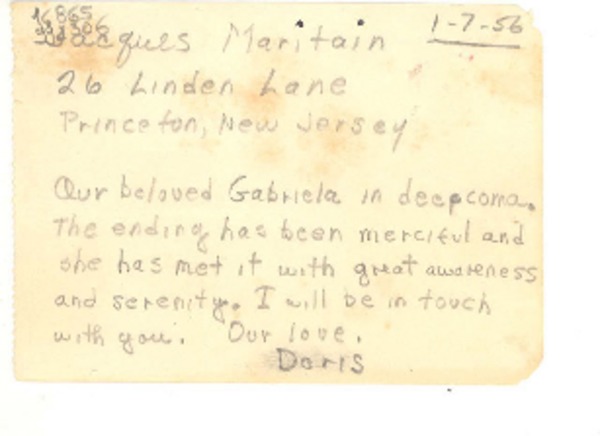 16865
Jacques Maritain
1-7-56
26 Linden Lane
Princeton, New Jersey
Our beloved Gabriela in deep coma.
The ending has been merciful and
she has met it with great awareness
and serenity. I will be in touch
with you. Our love.
Doris